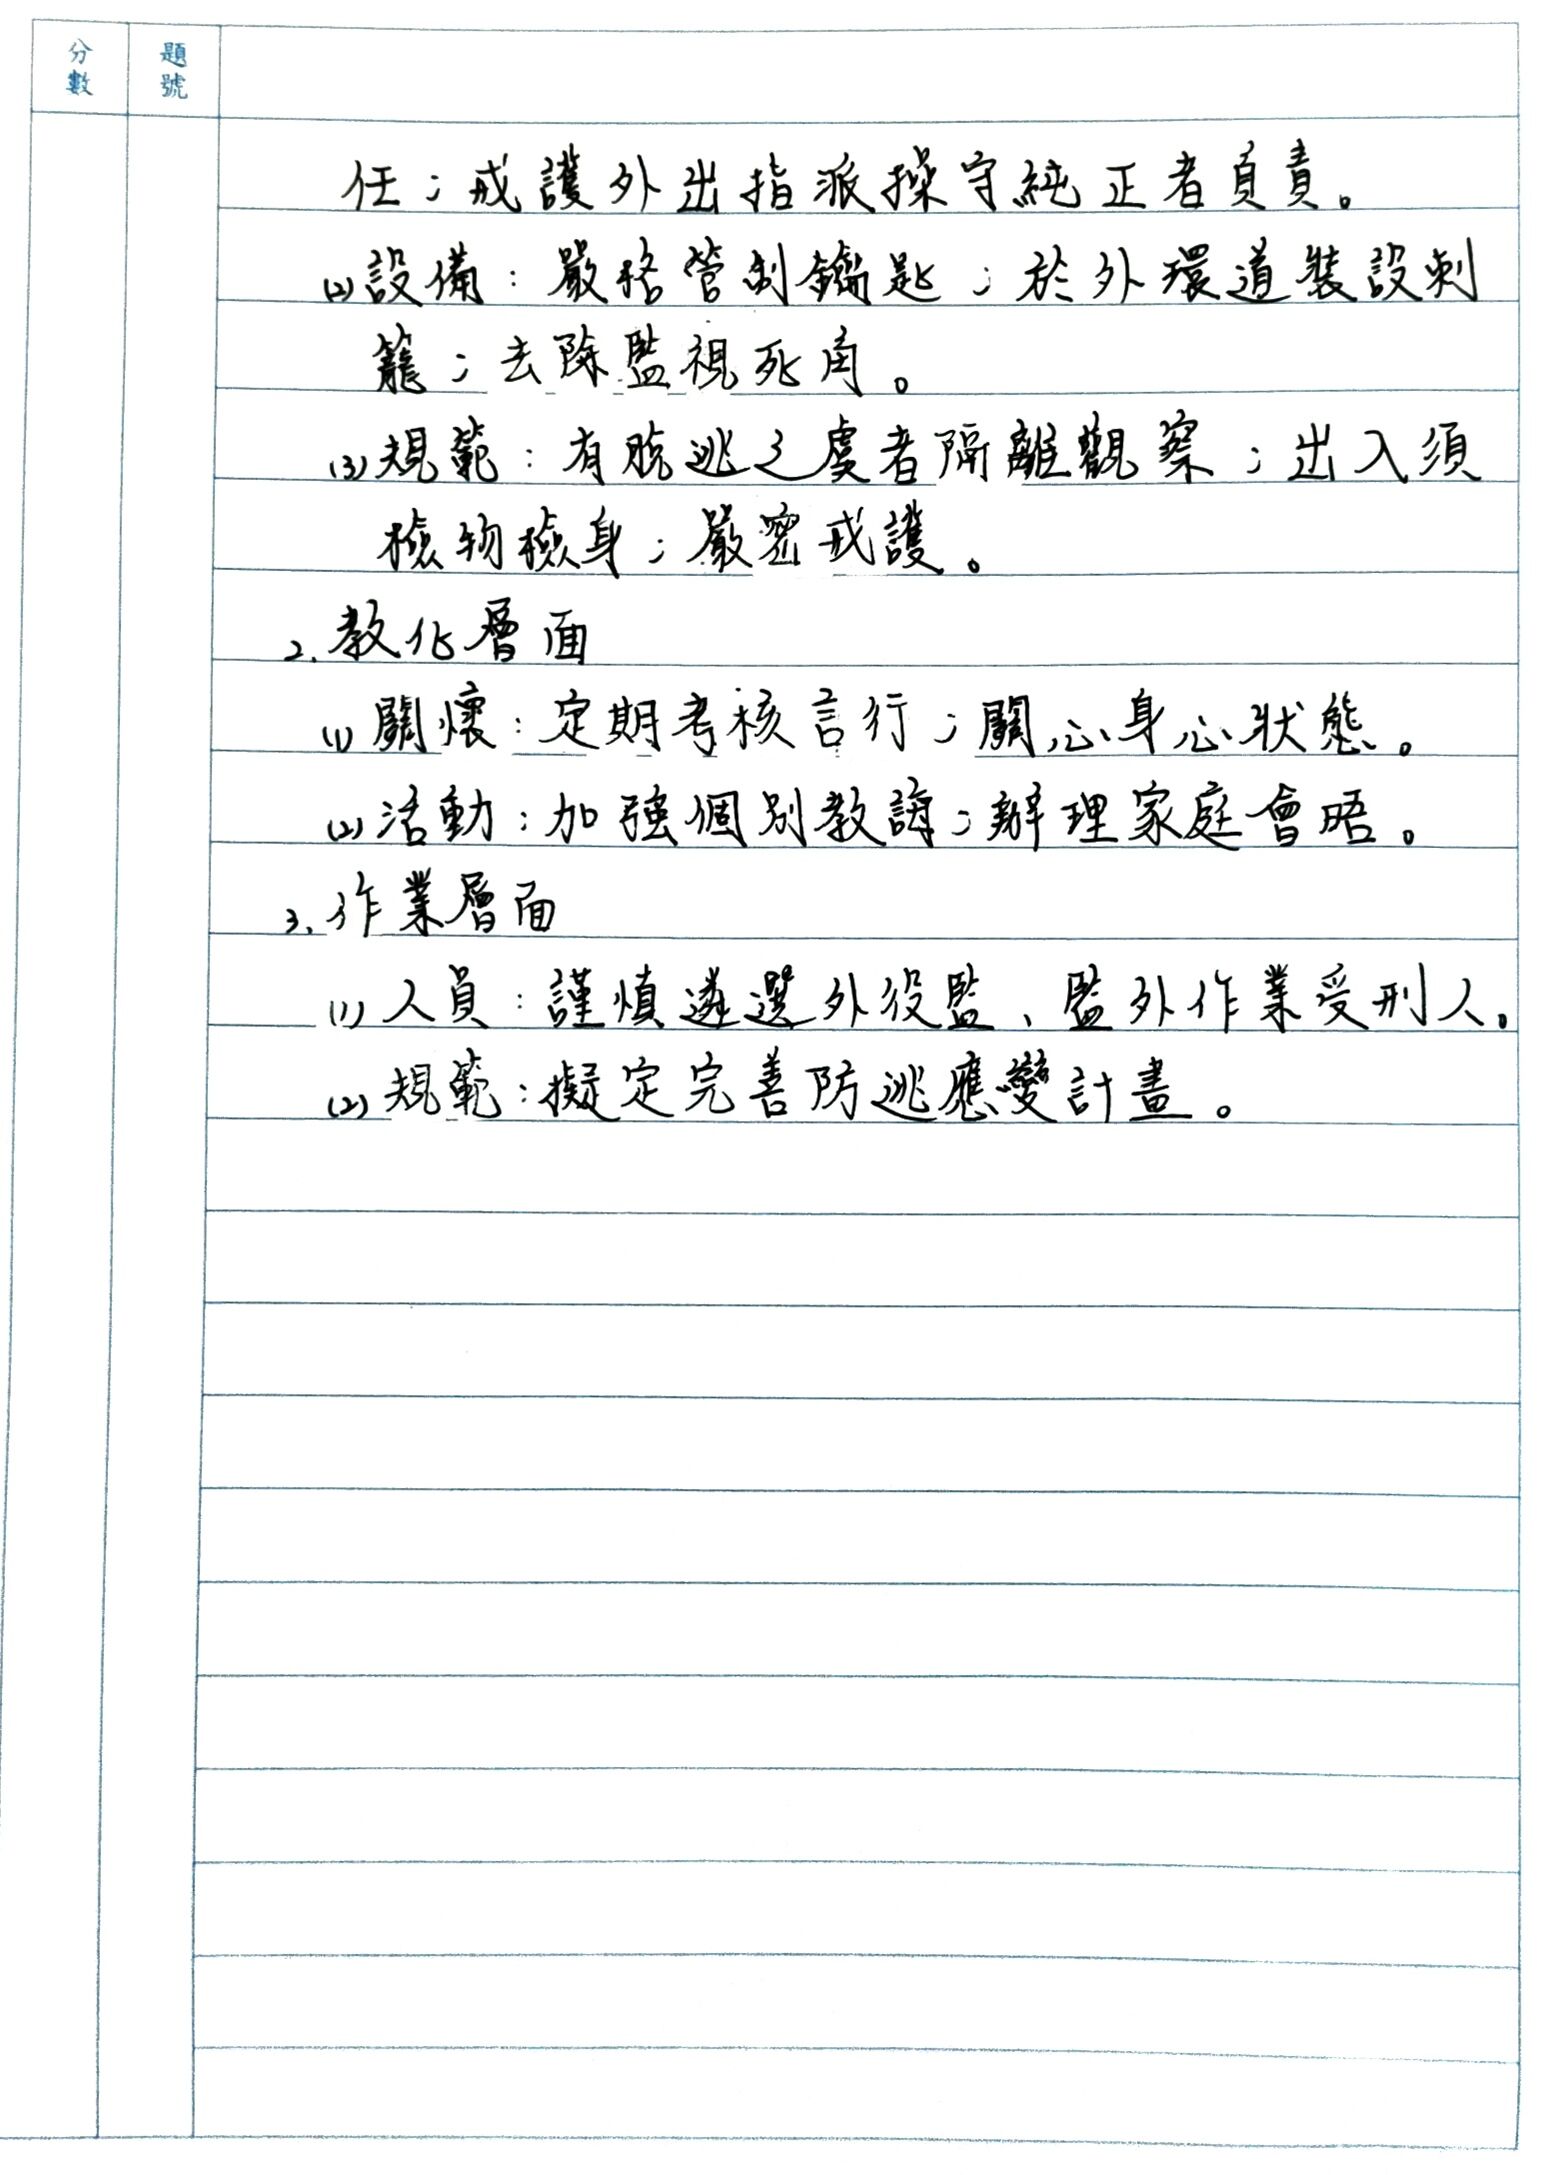 分數 題號
任；戒護外出指派操守純正者負責。
(2)設備：嚴格管制鑰匙；於外環道裝設刺
籠；去除監視死角。
(3)規範：有脫逃之虞者隔離觀察；出入須
檢物檢身；嚴密戒護。
2.教化層面
(1)關懷：定期考核言行；關心身心狀態。
(2)活動：加強個別教誨；辦理家庭會晤。
3.作業層面
(1)人員：謹慎遴選外役監、監外作業受刑人。
(2)規範：擬定完善防逃應變計畫。